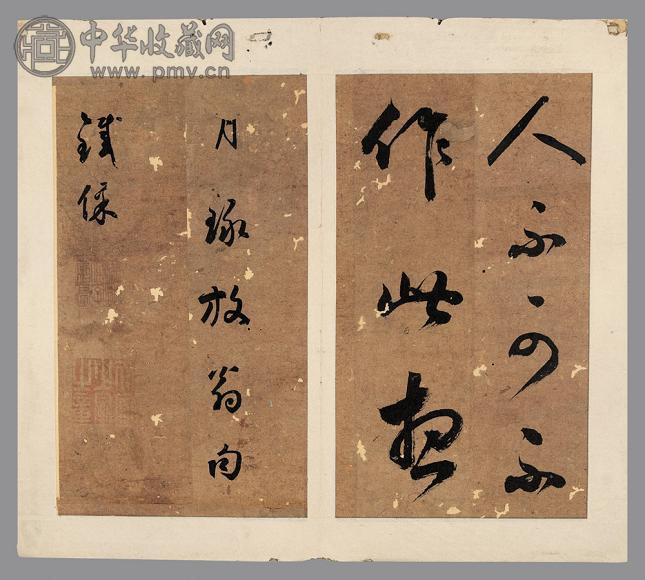 中华收藏网
www.pmv.cn
人不可不
作此想
月琢放翁句
铁保